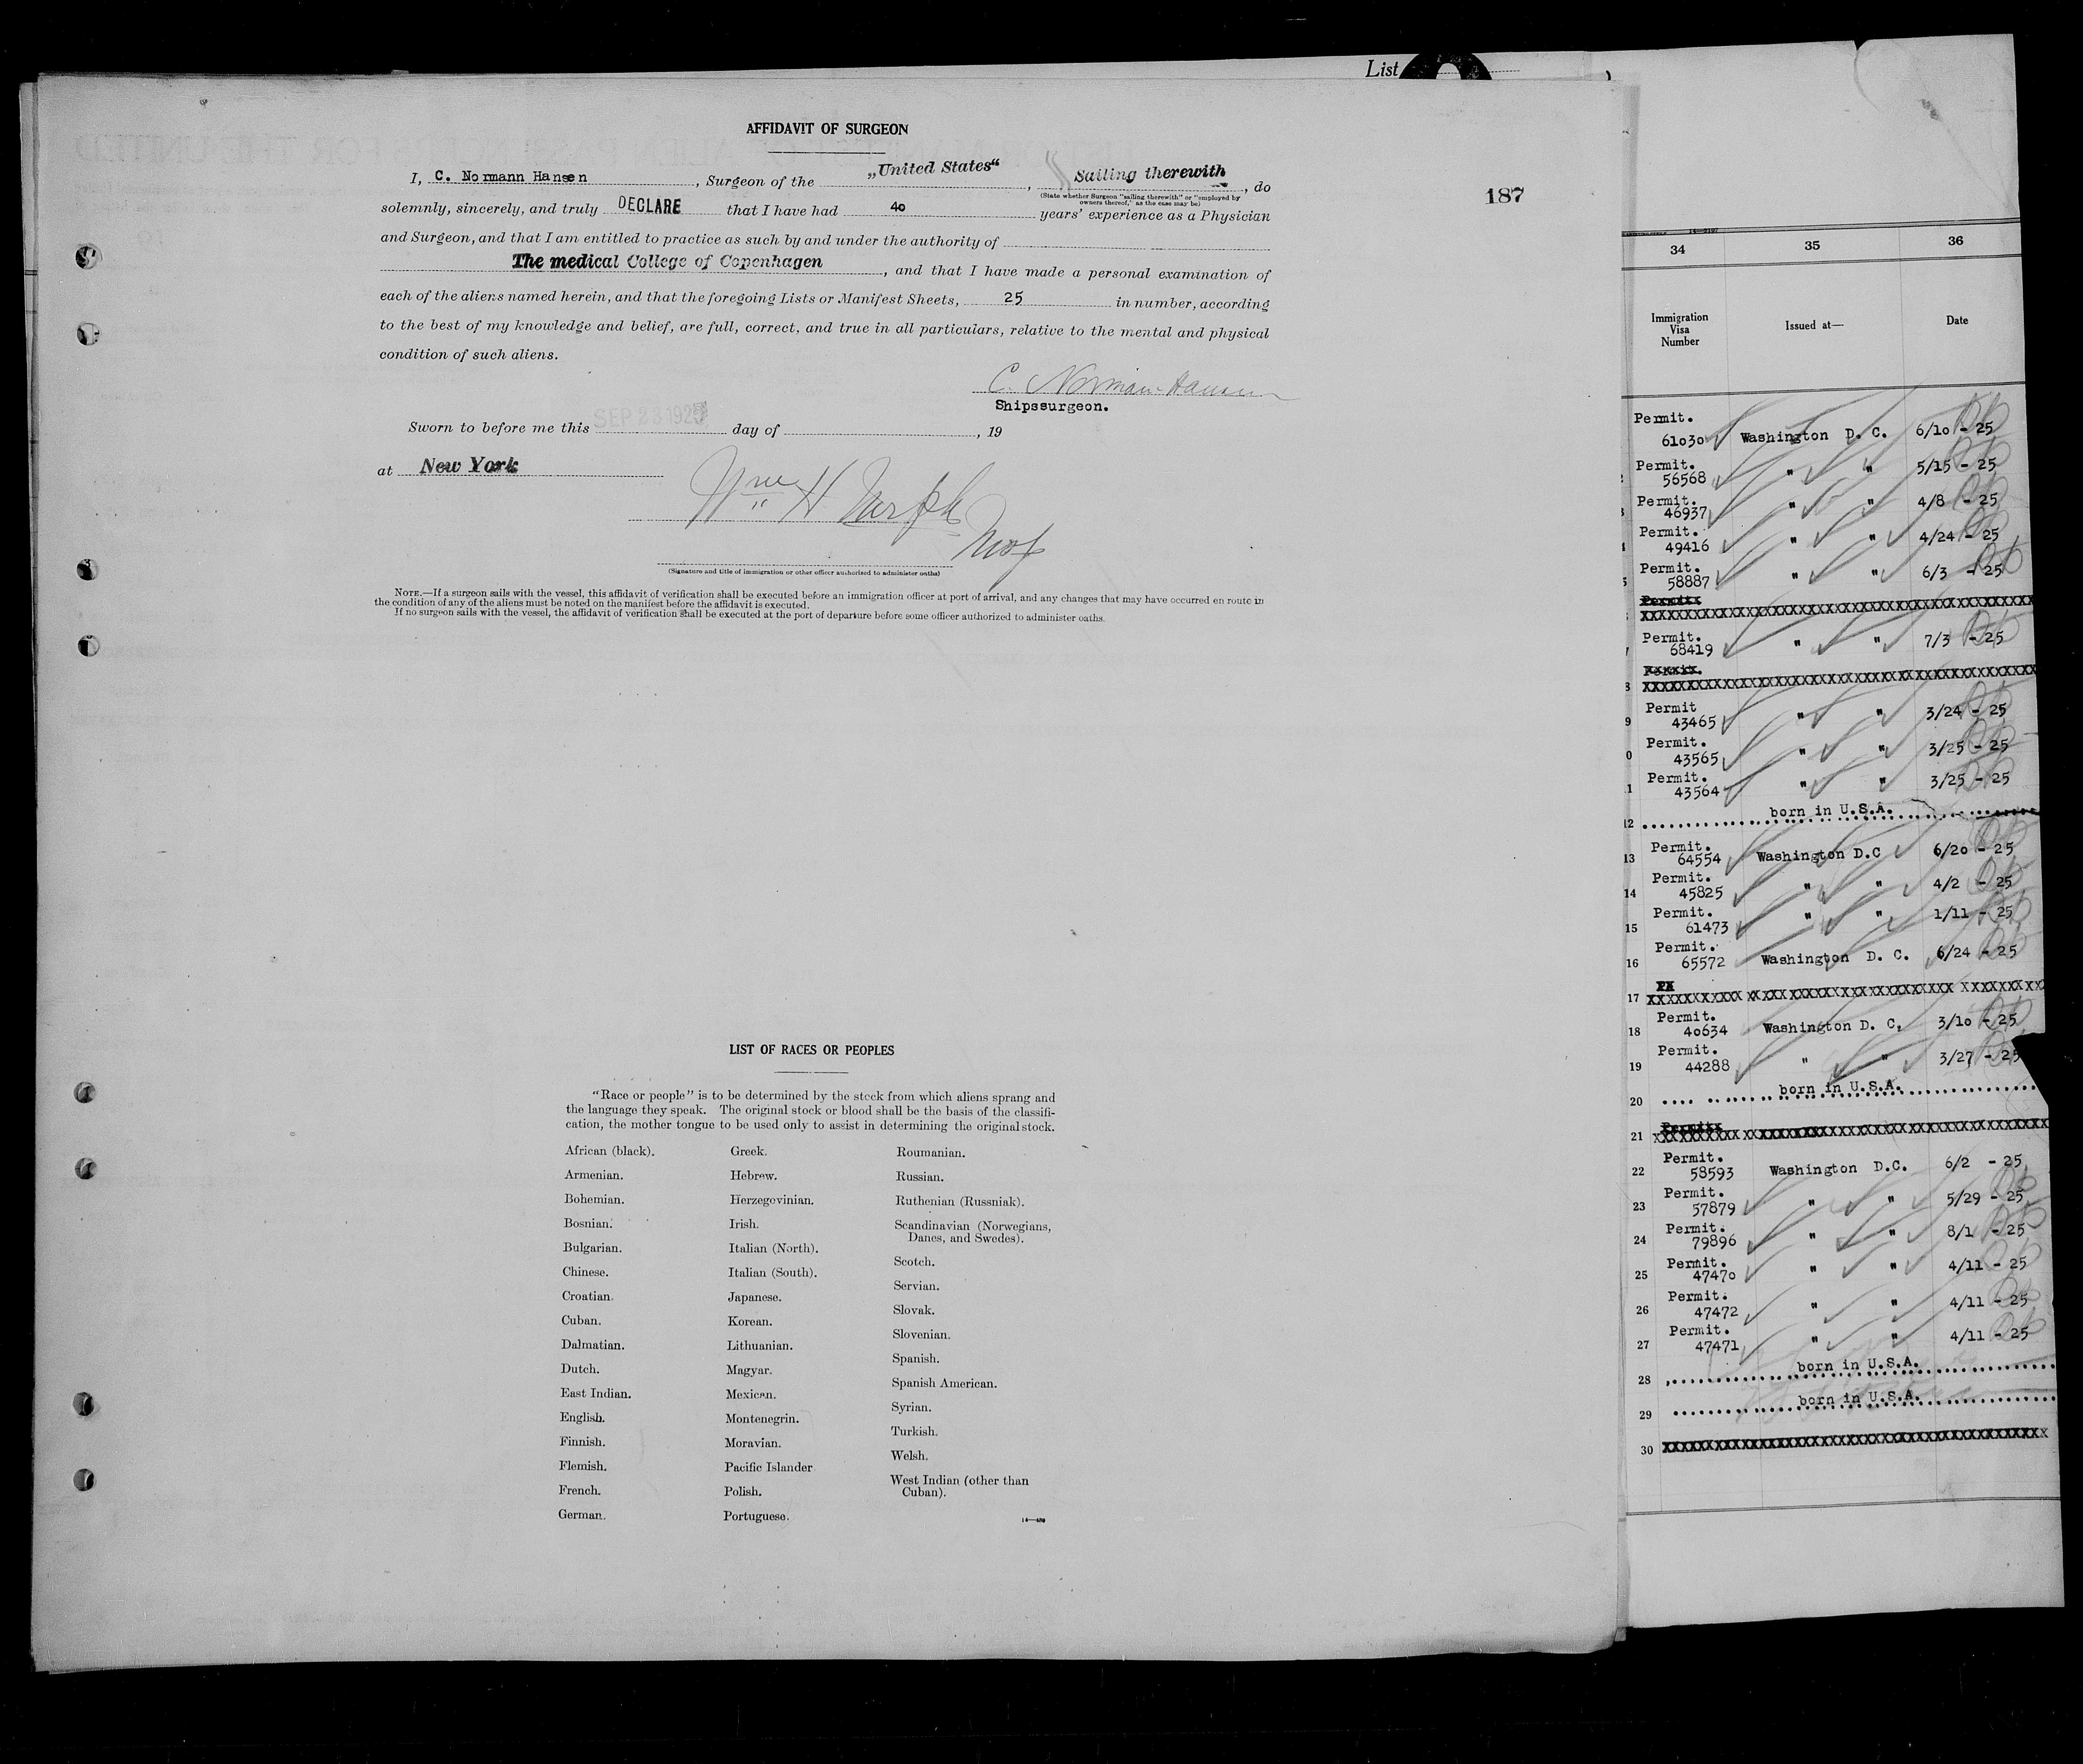 List
AFFIDAVIT OF SURGEON
187
I, C. Normann Hansen, Surgeon of the „United States“, Sailing therewith, do
(State whether Surgeon "sailing therewith" or "employed by owners thereof," as the case may be)
solemnly, sincerely, and truly DECLARE that I have had 40 years' experience as a Physician
and Surgeon, and that I am entitled to practice as such by and under the authority of
The medical College of Copenhagen, and that I have made a personal examination of
each of the aliens named herein, and that the foregoing Lists or Manifest Sheets, 25 in number, according
to the best of my knowledge and belief, are full, correct, and true in all particulars, relative to the mental and physical
condition of such aliens.
C. Norman-Hansen
Shipssurgeon.
Sworn to before me this SEP 23 1925 day of , 19
at New York
Wm H
(Signature and title of immigration or other officer authorized to administer oaths)
NOTE.—If a surgeon sails with the vessel, this affidavit of verification shall be executed before an immigration officer at port of arrival, and any changes that may have occurred en route in
the condition of any of the aliens must be noted on the manifest before the affidavit is executed.
If no surgeon sails with the vessel, the affidavit of verification shall be executed at the port of departure before some officer authorized to administer oaths.
LIST OF RACES OR PEOPLES
"Race or people" is to be determined by the stock from which aliens sprang and
the language they speak. The original stock or blood shall be the basis of the classifi-
cation, the mother tongue to be used only to assist in determining the original stock.
African (black).
Armenian.
Bohemian.
Bosnian.
Bulgarian.
Chinese.
Croatian.
Cuban.
Dalmatian.
Dutch.
East Indian.
English.
Finnish.
Flemish.
French.
German.
Greek.
Hebrew.
Herzegovinian.
Irish.
Italian (North).
Italian (South).
Japanese.
Korean.
Lithuanian.
Magyar.
Mexican.
Montenegrin.
Moravian.
Pacific Islander
Polish.
Portuguese.
Roumanian.
Russian.
Ruthenian (Russniak).
Scandinavian (Norwegians,
Danes, and Swedes).
Scotch.
Servian.
Slovak.
Slovenian.
Spanish.
Spanish American.
Syrian.
Turkish.
Welsh.
West Indian (other than
Cuban).
34 35 36
Immigration Visa Number Issued at— Date
Permit.
61030 Washington D. C. 6/10 - 25
Permit.
56568 " " 5/15 - 25
Permit.
46937 " " 4/8 - 25
Permit.
49416 " " 4/24 - 25
Permit.
58887 " " 6/3 - 25
Permit.
68419 " " 7/3 - 25
Permit
9 43465 " " 3/24 - 25
Permit.
0 43565 " " 3/25 - 25
Permit.
1 43564 " " 3/25 - 25
12 born in U.S.A.
Permit.
13 64554 Washington D.C 6/20 - 25
Permit.
14 45825 " " 4/2 - 25
Permit.
15 61473 " " 1/11 - 25
Permit.
16 65572 Washington D. C. 6/24 - 25
17 XXXXXXXXXXX
Permit.
18 40634 Washington D. C, 3/10 - 25
Permit.
19 44288 " " 3/27 - 25
20 born in U.S.A.
21 XXXXXXXXXX
Permit.
22 58593 Washington D.C. 6/2 - 25
Permit.
23 57879 " " 5/29 - 25
Permit.
24 79896 " " 8/1 - 25
Permit.
25 47470 " " 4/11 - 25
Permit.
26 47472 " " 4/11 - 25
Permit.
27 47471 " " 4/11 - 25
28 born in U.S.A.
29 born in U.S.A.
30 XXXXXXXXXXXX